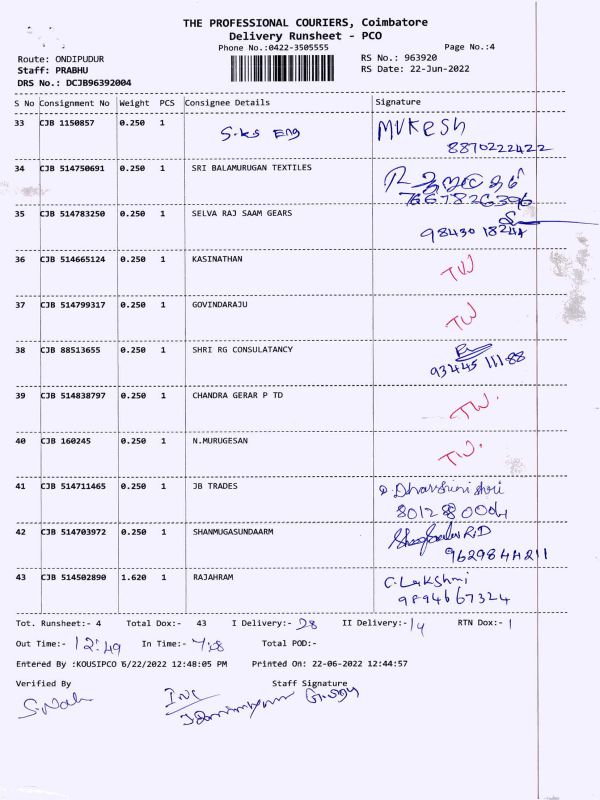 THE PROFESSIONAL COURIERS, Coimbatore
Delivery Runsheet - PCO
Phone No.:0422-3505555
Page No.:4
Route: ONDIPUDUR
RS No.: 963920
Staff: PRABHU
RS Date: 22-Jun-2022
DRS No.: DCJB96392004
S No Consignment No Weight PCS Consignee Details Signature
33 CJB 1150857 0.250 1 S.KS Eng MUKESH
8870222422
34 CJB 514750691 0.250 1 SRI BALAMURUGAN TEXTILES
7667826396
35 CJB 514783250 0.250 1 SELVA RAJ SAAM GEARS
98430 18244
36 CJB 514665124 0.250 1 KASINATHAN TW
37 CJB 514799317 0.250 1 GOVINDARAJU TW
38 CJB 88513655 0.250 1 SHRI RG CONSULATANCY
93445 11188
39 CJB 514838797 0.250 1 CHANDRA GERAR P TD TW.
40 CJB 160245 0.250 1 N.MURUGESAN TW.
41 CJB 514711465 0.250 1 JB TRADES Dharshini shri
8012880004
42 CJB 514703972 0.250 1 SHANMUGASUNDAARM
9629844211
43 CJB 514502890 1.620 1 RAJAHRAM C. Lakshmi
9894667324
Tot. Runsheet:- 4 Total Dox:- 43 I Delivery:- 28 II Delivery:- 14 RTN Dox:- 1
Out Time:- 12:49 In Time:- 7:28 Total POD:-
Entered By :KOUSIPCO 6/22/2022 12:48:05 PM Printed On: 22-06-2022 12:44:57
Verified By Staff Signature